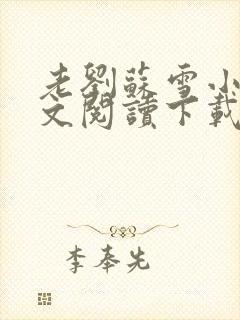 老劉蘇雪小
文閱讀下載
李奉先